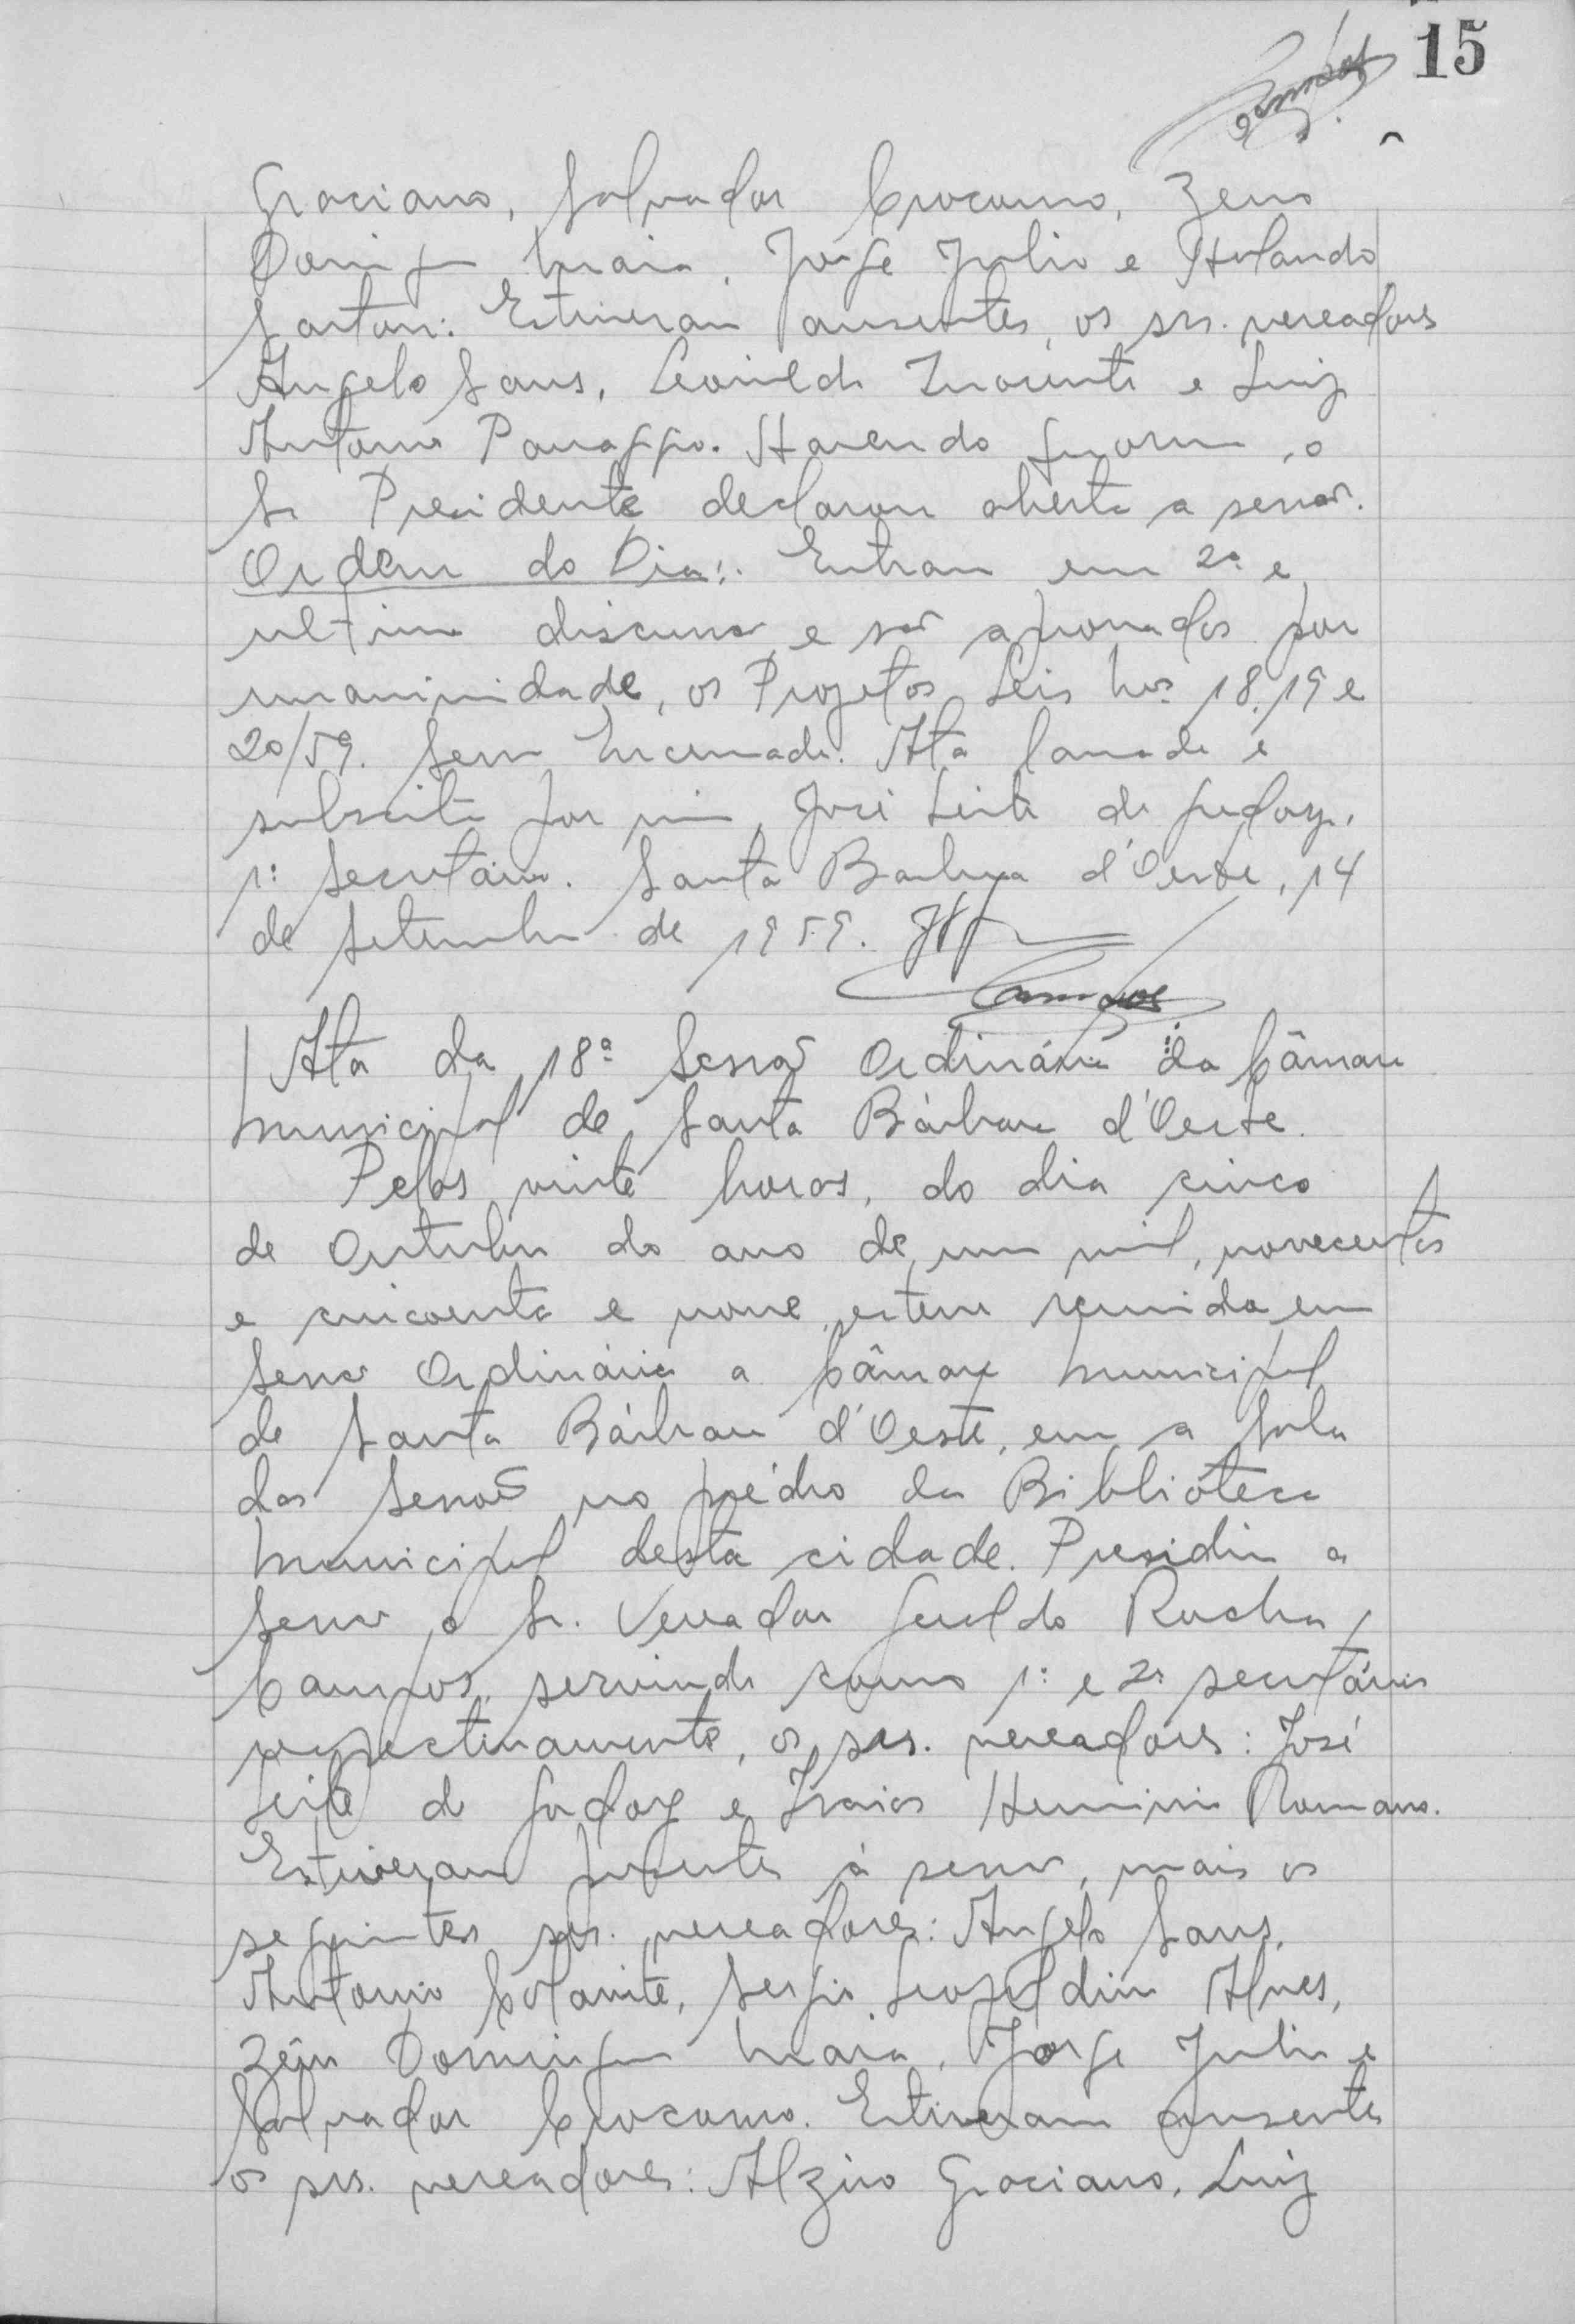 15
Campos
Graciano, Salvador Crocomo, Zeno
Domingos Maia, Jorge Julio e Holando
Sartori. Estiveram ausentes, os srs. vereadores
Angelo Sans, Leonildo Inocente e Luiz
Antonio Panaggio. Havendo quorum, o
Sr Presidente declarou aberta a sessão.
Ordem do Dia:. Entram em 2ª e
ultima discussão e são aprovados por
unanimidade, os Projetos Leis Nos 18, 19 e
20/59. Sessão Encerrada. Ata lavrada e
subscrita por mim, José Leite de Godoy,
1º Secretário. Santa Barbara d'Oeste, 14
de Setembro de 1959.
Campos
Ata da 18ª Sessão Ordinária da Câmara
Municipal de Santa Bárbara d'Oeste.
Pelas vinte horas, do dia cinco
de Outubro do ano de um mil, novecentos
e cincoenta e nove, esteve reunida em
Sessão Ordinária a Câmara Municipal
de Santa Bárbara d'Oeste, em a Sala
das Sessões no prédio da Biblióteca
Municipal desta cidade. Presidiu a
Sessão o Sr. Vereador Geraldo Rocha
Campos, servindo como 1º e 2º secretários
respectivamente, os srs. vereadores: José
Leite de Godoy e Isaias Herminio Romano.
Estiveram presentes à sessão, mais os
seguintes srs. vereadores: Angelo Sans,
Antonio Colamite, Sergio Leopoldino Alves,
Zeno Domingos Maia, Jorge Julio e
Salvador Crocomo. Estiveram ausentes
os srs. vereadores: Alziro Graciano, Luiz